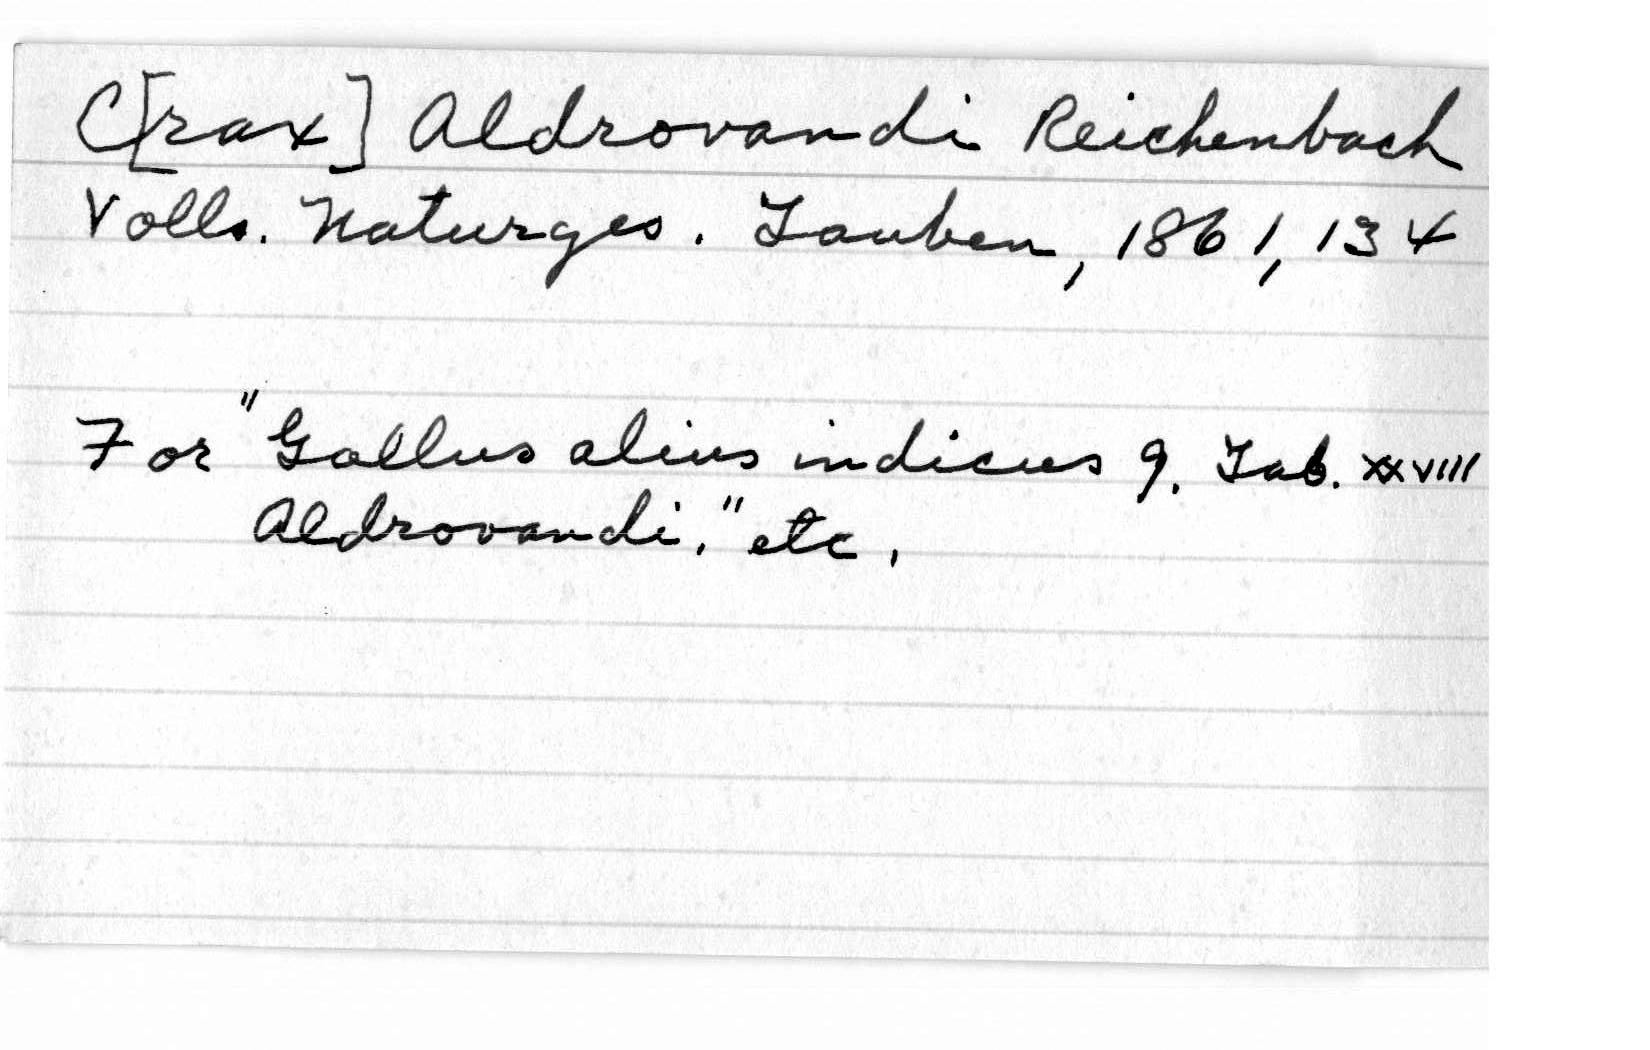 C[rax] Aldrovandi Reichenbach
Volls. Naturges. Tauben, 1861, 134
For "Gallus alius indicus 9. Tab. XXVIII
Aldrovandi," etc.